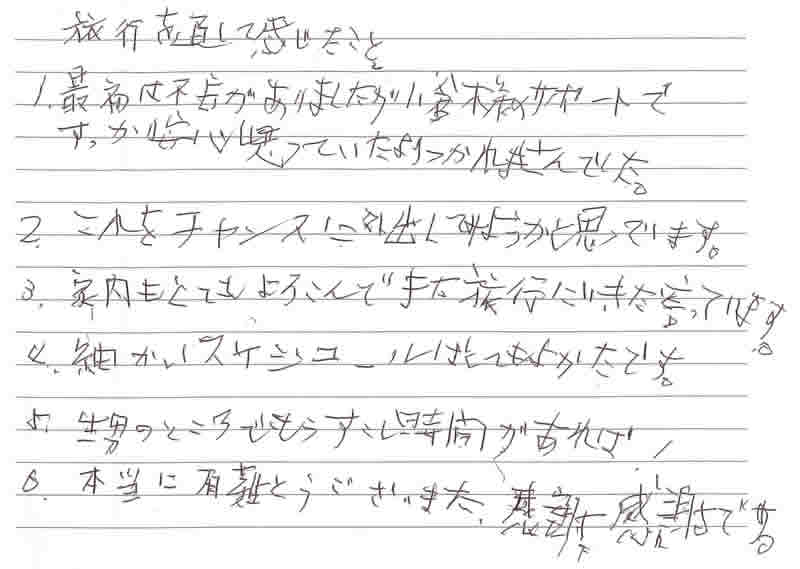 旅行を通して感じたこと
1. 最初は不安がありましたが小笠木様のサポートで
すっかり安心 思っていたよりつかれませんでした。
2. これをチャンスに外出してみようかと思っています。
3. 家内もとてもよろこんでまた旅行に行きたいと言っています。
4. 細かいスケジュールはとてもよかったです。
5. のところでもう少し時間があれば!
6. 本当に有難とうございました。感謝 感謝です。